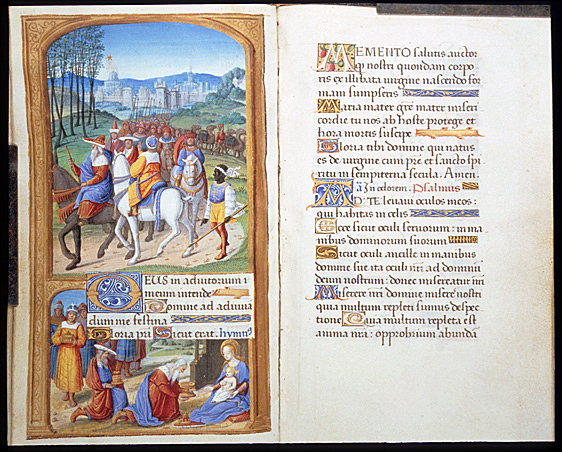 DEUS in adiutorium
meum intende
Domine ad adiuva
dum me festina
Gloria pri Sicut erat. hymn
MEMENTO salutis auctor
q nostri quondam corpo
ris ex illibata virgine nascendo for
mam sumpseris
Maria mater gre mater miseri
cordie tu nos ab hoste protege et
hora mortis suscipe
Gloria tibi domine qui natus
es de virgine cum pre et sancto spi
ritu in sempiterna secula. Amen.
Psalmus
AD TE levavi oculos meos:
qui habitas in celis
Ecce sicut oculi servorum: in ma
nibus dominorum suorum
Sicut oculi ancille in manibus
domine sue ita oculi nri ad dominu
deum nostrum: donec misereatur nri
Miserere nri domine miserere nostri
quia multum repleti sumus despec
tione Quia multum repleta est
anima nra: opprobrium abunda